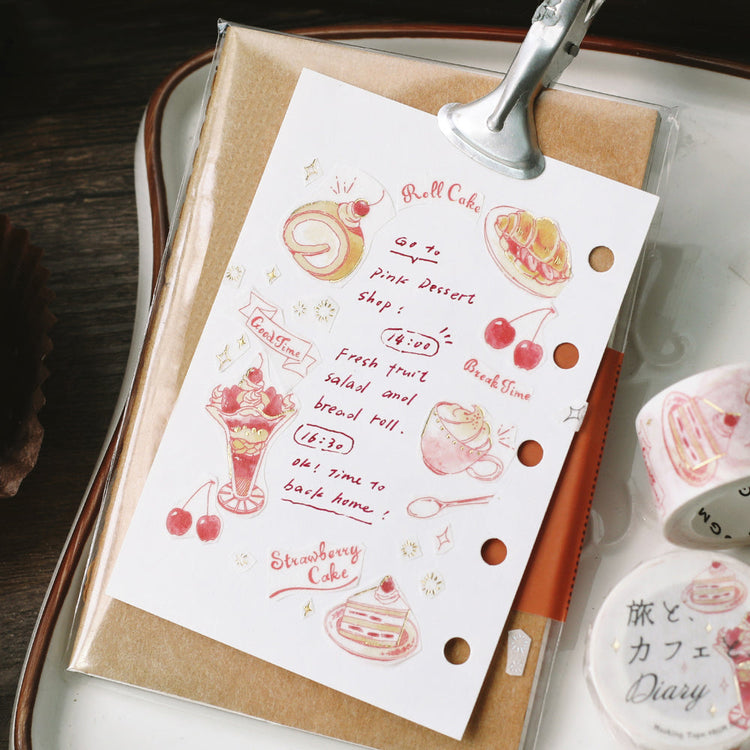 Roll Cake
Go to
Pink Dessert
shop!
14:00
Good Time
Fresh fruit
salad and
bread roll.
Break Time
16:30
ok! Time to
back home!
Strawberry
Cake
旅と、
カフェと
Diary
Masking Tape
GM